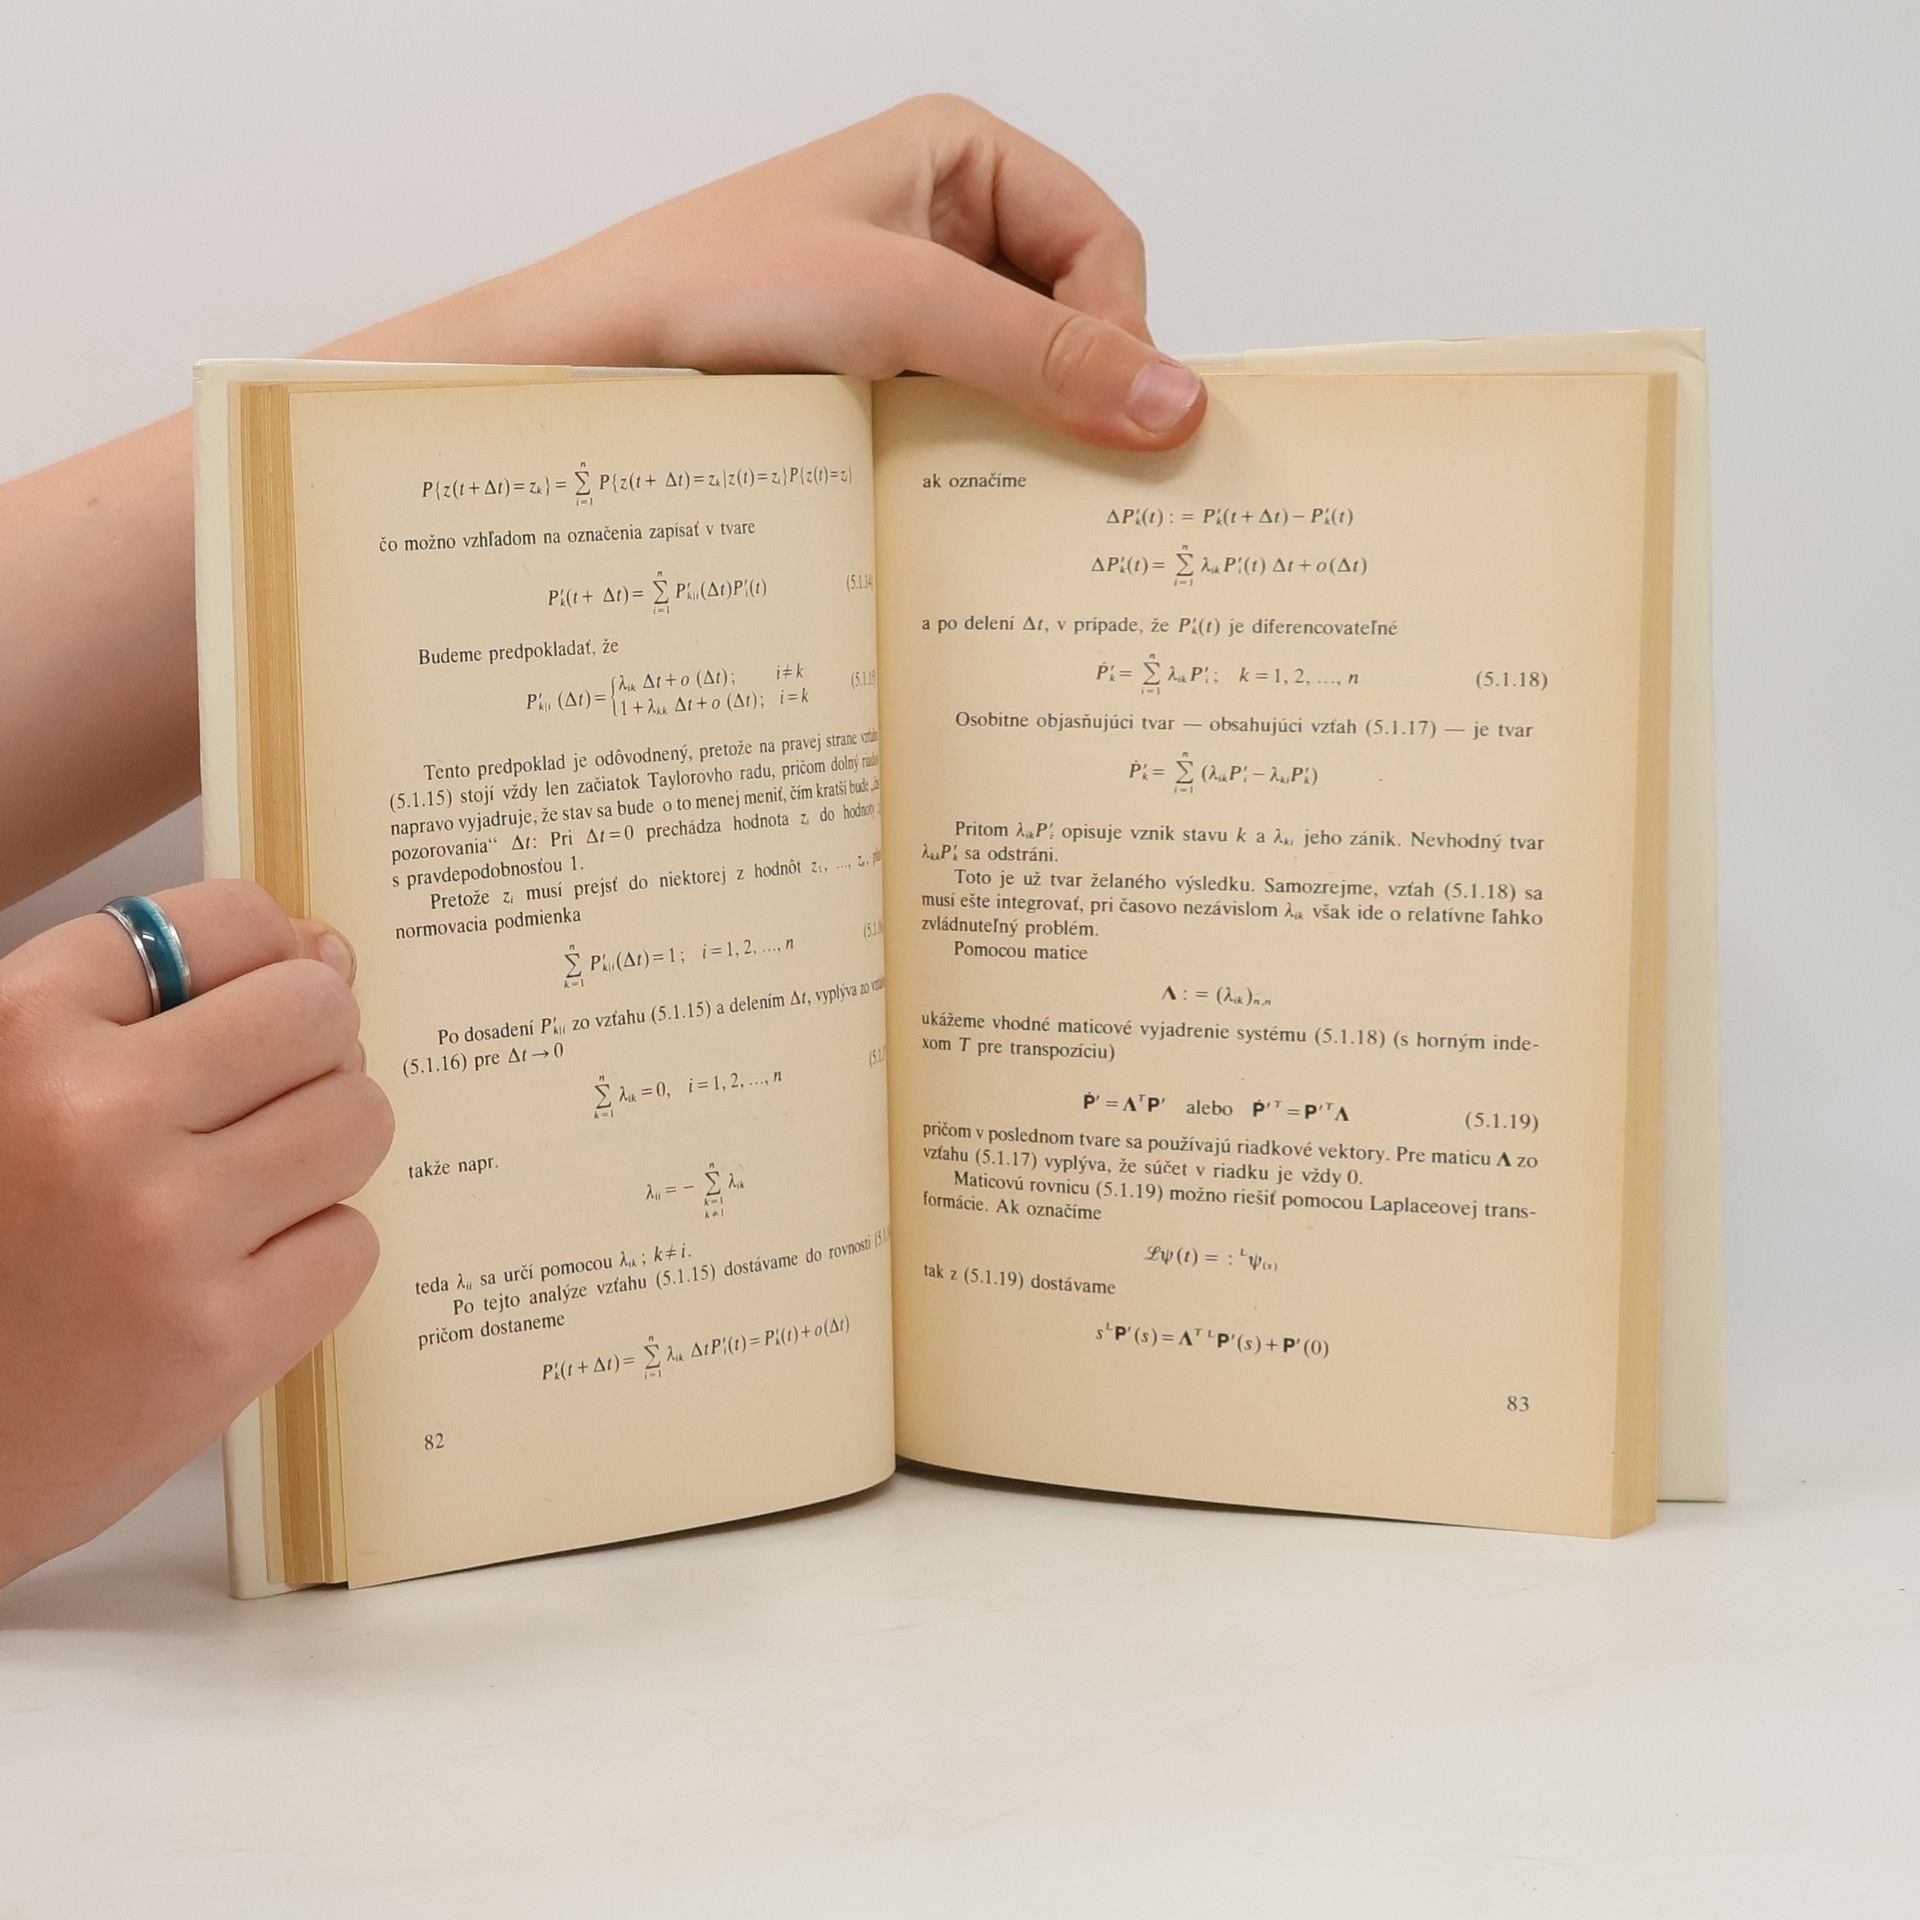 P{z(t+Δt)=z_k}= Σ_{i=1}^{n} P{z(t+ Δt)=z_k|z(t)=z_i}P{z(t)=z_i}
čo možno vzhľadom na označenia zapísať v tvare
P′_k(t+ Δt)= Σ_{i=1}^{n} P′_{k|i}(Δt)P′_i(t) (5.1.14
Budeme predpokladať, že
P′_{k|i} (Δt)={λ_{ik} Δt+o (Δt); i≠k
1+λ_{kk} Δt+o (Δt); i=k (5.1.15
Tento predpoklad je odôvodnený, pretože na pravej strane
(5.1.15) stojí vždy len začiatok Taylorovho radu, pričom dolný
napravo vyjadruje, že stav sa bude o to menej meniť, čím kratší bude
pozorovania“ Δt: Pri Δt=0 prechádza hodnota z_i do hodnoty
s pravdepodobnosťou 1.
Pretože z_i musí prejsť do niektorej z hodnôt z_1, ..., z_n,
normovacia podmienka
Σ_{k=1}^{n} P′_{k|i}(Δt)=1; i=1, 2, ..., n (5.1.16
Po dosadení P′_{k|i} zo vzťahu (5.1.15) a delením Δt, vyplýva zo
(5.1.16) pre Δt→0
Σ_{k=1}^{n} λ_{ik}=0, i=1, 2, ..., n (5.1.
takže napr.
λ_{ii}=− Σ_{k=1, k≠i}^{n} λ_{ik}
teda λ_{ii} sa určí pomocou λ_{ik}; k≠i.
Po tejto analýze vzťahu (5.1.15) dostávame do rovnosti (5.1.
pričom dostaneme
P′_k(t+Δt)= Σ_{i=1}^{n} λ_{ik} ΔtP′_i(t)=P′_k(t)+o(Δt)
82
ak označíme
ΔP′_k(t) : = P′_k(t+Δt)−P′_k(t)
ΔP′_k(t)= Σ_{i=1}^{n} λ_{ik}P′_i(t) Δt+o(Δt)
a po delení Δt, v prípade, že P′_k(t) je diferencovateľné
Ṗ′_k= Σ_{i=1}^{n} λ_{ik}P′_i; k=1, 2, ..., n (5.1.18)
Osobitne objasňujúci tvar — obsahujúci vzťah (5.1.17) — je tvar
Ṗ′_k= Σ_{i=1}^{n} (λ_{ik}P′_i−λ_{ki}P′_k)
Pritom λ_{ik}P′_i opisuje vznik stavu k a λ_{ki} jeho zánik. Nevhodný tvar
λ_{kk}P′_k sa odstráni.
Toto je už tvar želaného výsledku. Samozrejme, vzťah (5.1.18) sa
musí ešte integrovať, pri časovo nezávislom λ_{ik} však ide o relatívne ľahko
zvládnuteľný problém.
Pomocou matice
Λ : = (λ_{ik})_{n,n}
ukážeme vhodné maticové vyjadrenie systému (5.1.18) (s horným inde-
xom T pre transpozíciu)
Ṗ′=Λ^T P′ alebo Ṗ′^T=P′^T Λ (5.1.19)
pričom v poslednom tvare sa používajú riadkové vektory. Pre maticu Λ zo
vzťahu (5.1.17) vyplýva, že súčet v riadku je vždy 0.
Maticovú rovnicu (5.1.19) možno riešiť pomocou Laplaceovej trans-
formácie. Ak označíme
ℒψ(t) = : ^Lψ_{(s)}
tak z (5.1.19) dostávame
s^L P′(s)=Λ^T ^L P′(s)+P′(0)
83